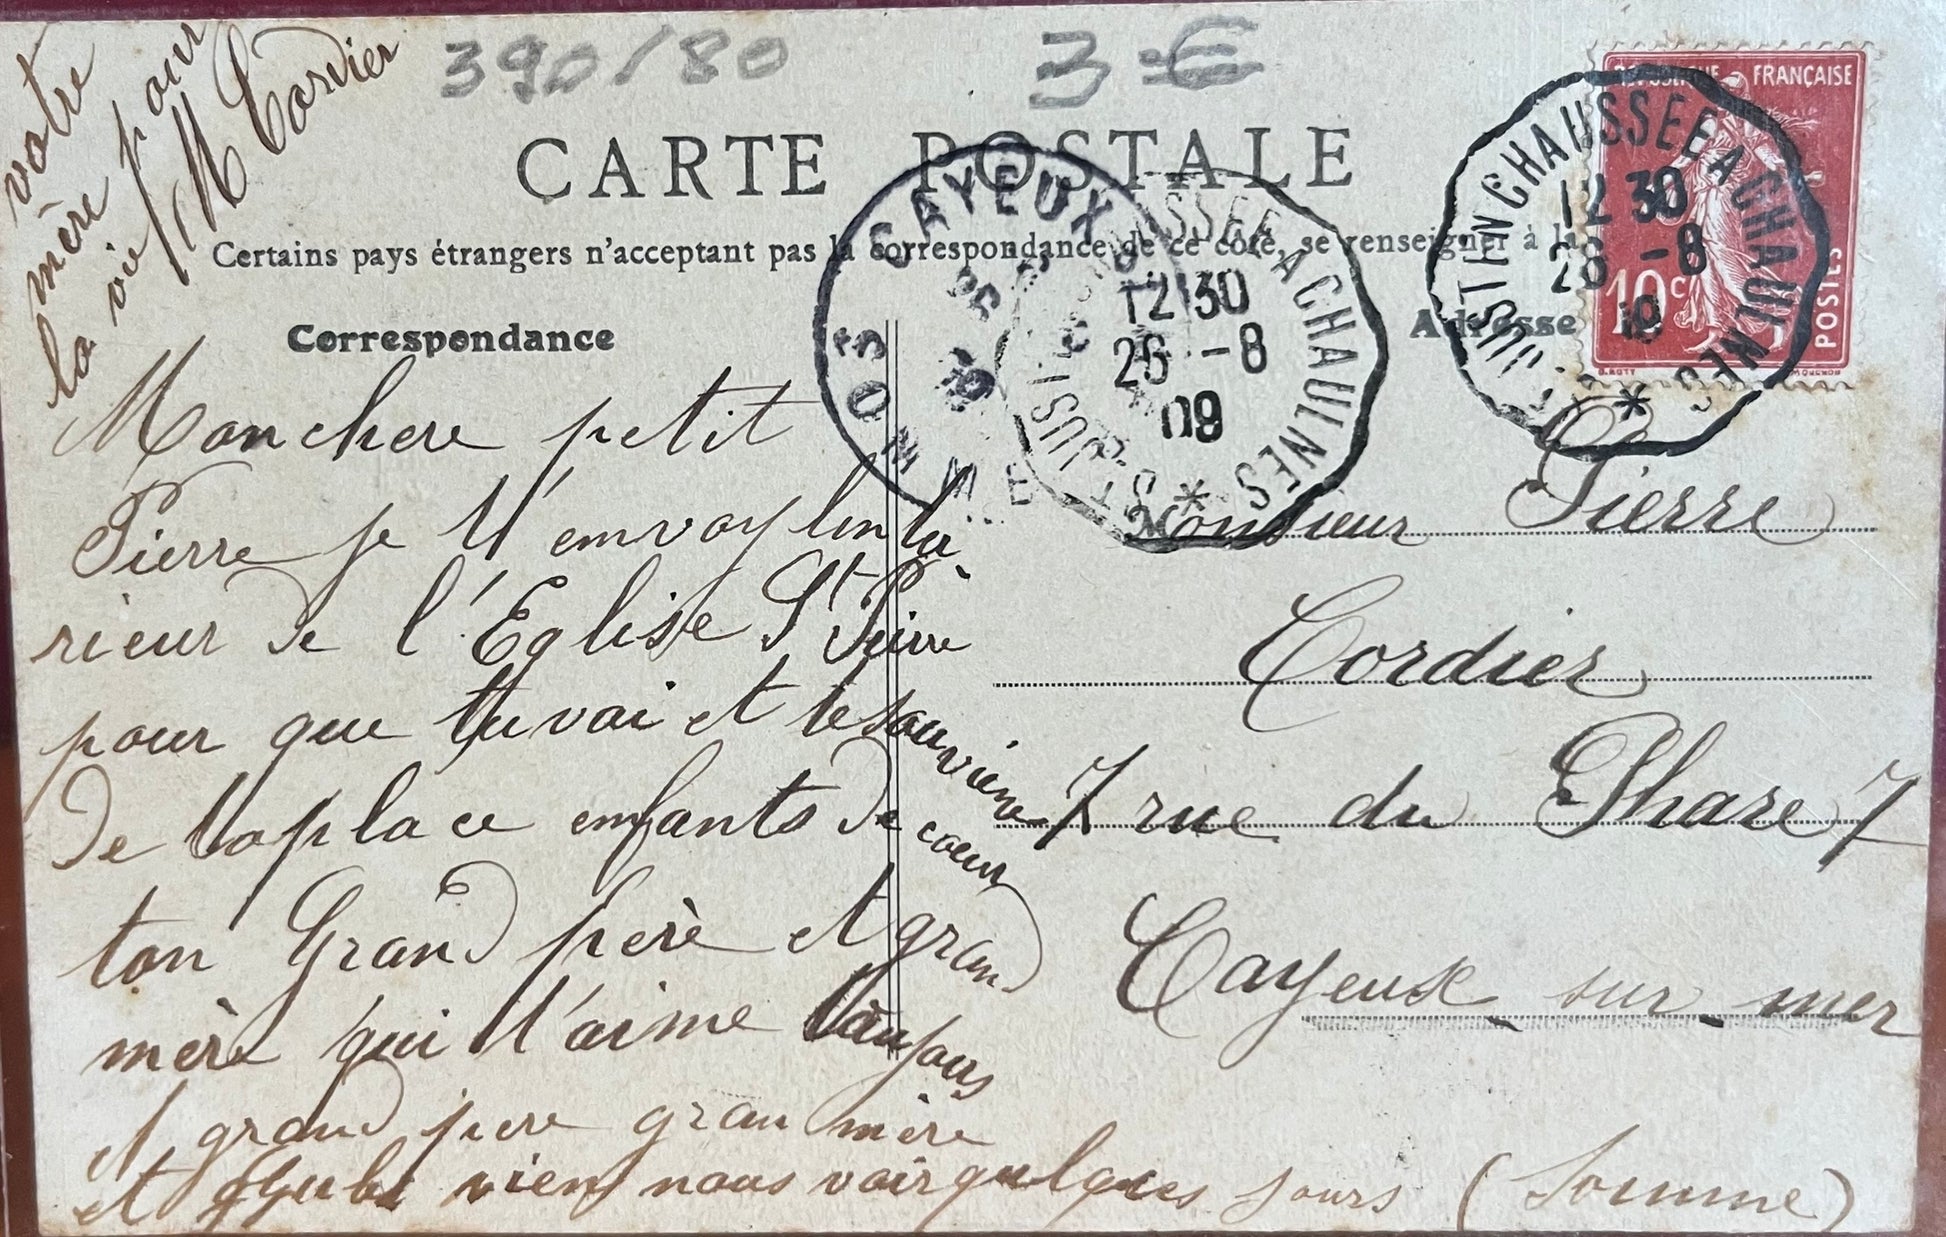 390/80
3 €
CARTE POSTALE
Certains pays étrangers n'acceptant pas la correspondance de ce côté, se renseigner à la
Correspondance
Adresse
RÉPUBLIQUE FRANÇAISE
10c
POSTES
ST-JUST-EN-CHAUSSEE A CHAULNES
12 30
28 -8
CAYEUX
SOMME
CHAUSSEE A CHAULNES
12 30
26 -8
09
Mon chere petit
Pierre je t'envoy linte
rieur de l'Eglise St Peirre
pour que tu vai et te souviene
de ta place enfants de coeur
ton Grand père et grand
mère qui t'aime toujous
et grand pere gran mère
et vien nous voir quelques jours
votre
mère pour
la vie
M Cordier
Monsieur Pierre
Cordier
7 rue du Phare 7
Cayeux sur mer
(Somme)